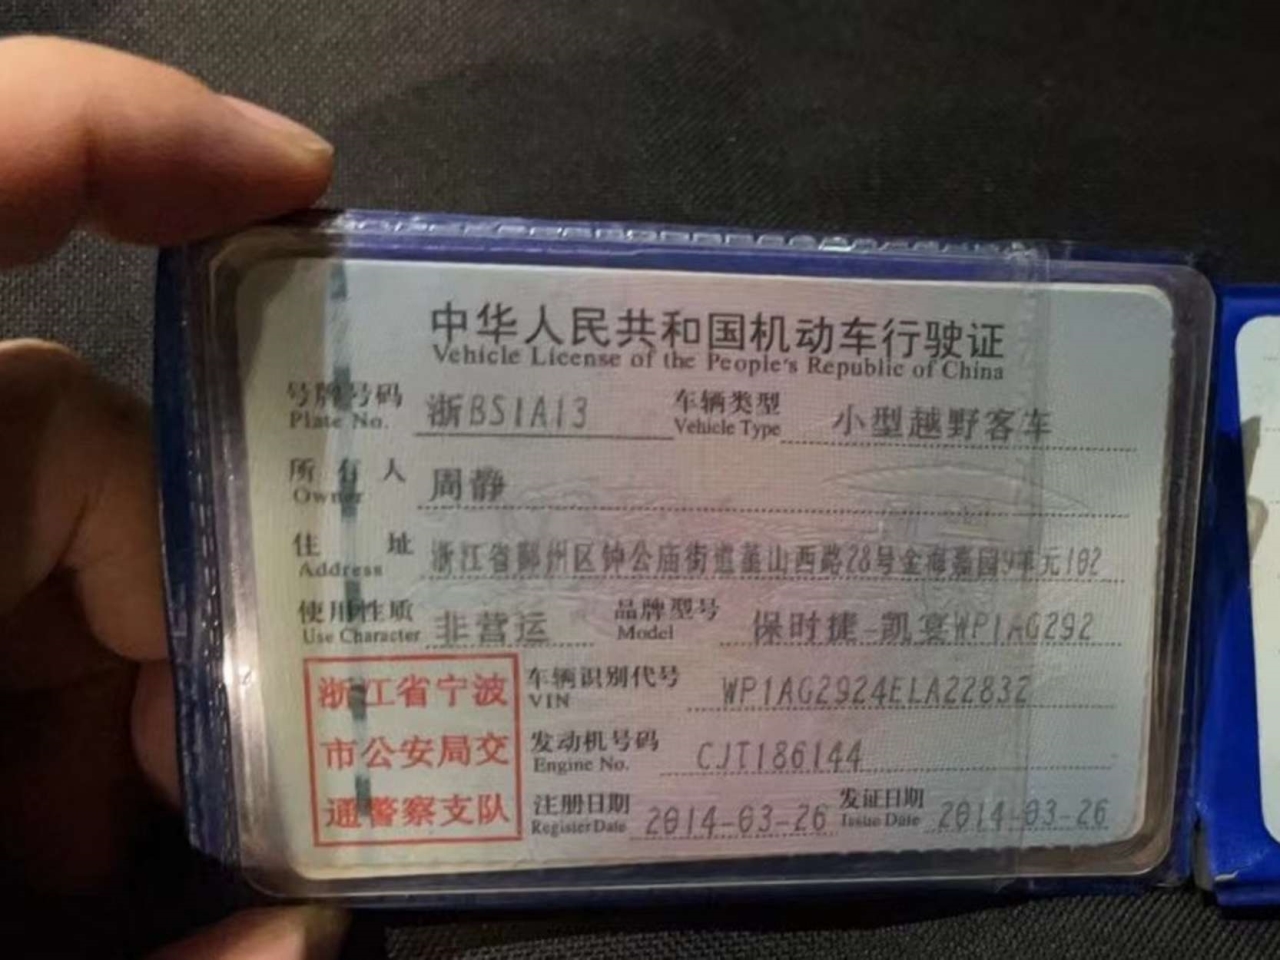 中华人民共和国机动车行驶证
Vehicle License of the People's Republic of China
号牌号码 浙BS1A13 车辆类型 小型越野客车
Plate No. Vehicle Type
所有人 周静
Owner
住址 浙江省鄞州区钟公庙街道堇山西路28号金海嘉园9单元102
Address
使用性质 非营运 品牌型号 保时捷-凯宴WP1AG292
Use Character Model
浙江省宁波
市公安局交
通警察支队
车辆识别代号 WP1AG2924ELA22832
VIN
发动机号码 CJT186144
Engine No.
注册日期 2014-03-26 发证日期 2014-03-26
Register Date Issue Date